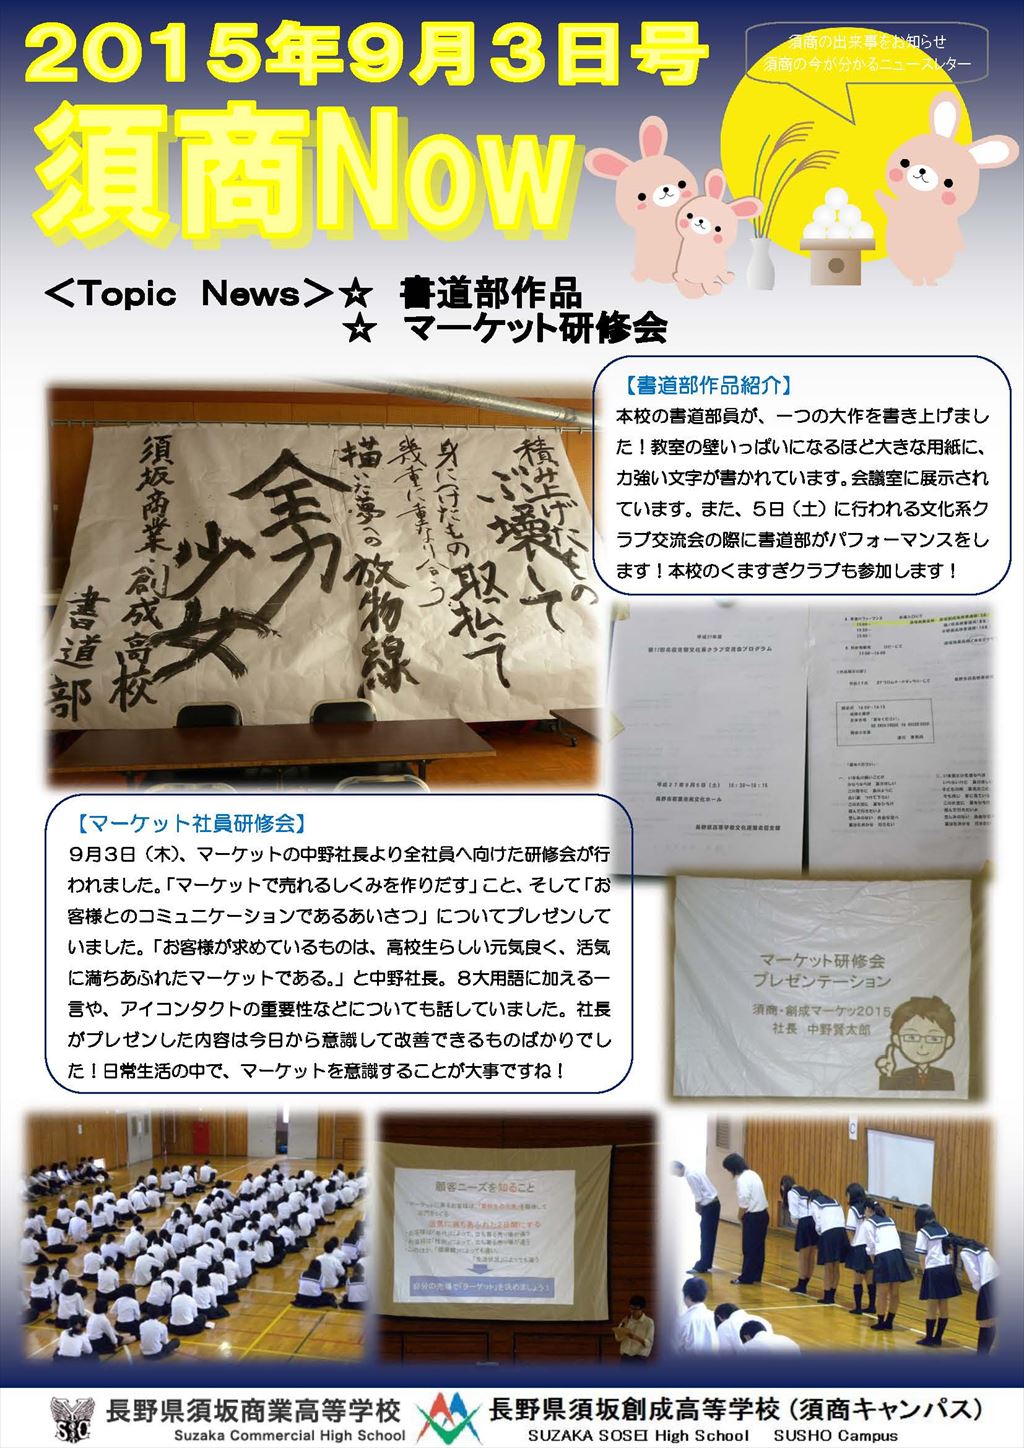 2015年9月3日号
須商の出来事をお知らせ
須商の今が分かるニュースレター
須商Now
<Topic News>☆ 書道部作品
☆ マーケット研修会
【書道部作品紹介】
本校の書道部員が、一つの大作を書き上げまし
た！教室の壁いっぱいになるほど大きな用紙に、
力強い文字が書かれています。会議室に展示され
ています。また、5日（土）に行われる文化系ク
ラブ交流会の際に書道部がパフォーマンスをし
ます！本校のくますぎクラブも参加します！
積み上げたもの
ぶっ壊して
身につけたもの
取っ払って
幾重に重なり合う
描いた夢への
放物線
全力
少女
須坂商業創成高校
書道部
平成27年度
長野市若里市民文化ホール
【マーケット社員研修会】
9月3日（木）、マーケットの中野社長より全社員へ向けた研修会が行
われました。「マーケットで売れるしくみを作りだす」こと、そして「お
客様とのコミュニケーションであるあいさつ」についてプレゼンして
いました。「お客様が求めているものは、高校生らしい元気良く、活気
に満ちあふれたマーケットである。」と中野社長。8大用語に加える一
言や、アイコンタクトの重要性などについても話していました。社長
がプレゼンした内容は今日から意識して改善できるものばかりでし
た！日常生活の中で、マーケットを意識することが大事ですね！
マーケット研修会
プレゼンテーション
須商・創成マーケッツ2015
社長 中野賢太郎
顧客ニーズを知ること
活気に満ちあふれた2日間にする
自分の売場で「ターゲット」を決めましょう！
長野県須坂商業高等学校
Suzaka Commercial High School
長野県須坂創成高等学校（須商キャンパス）
SUZAKA SOSEI High School SUSHO Campus